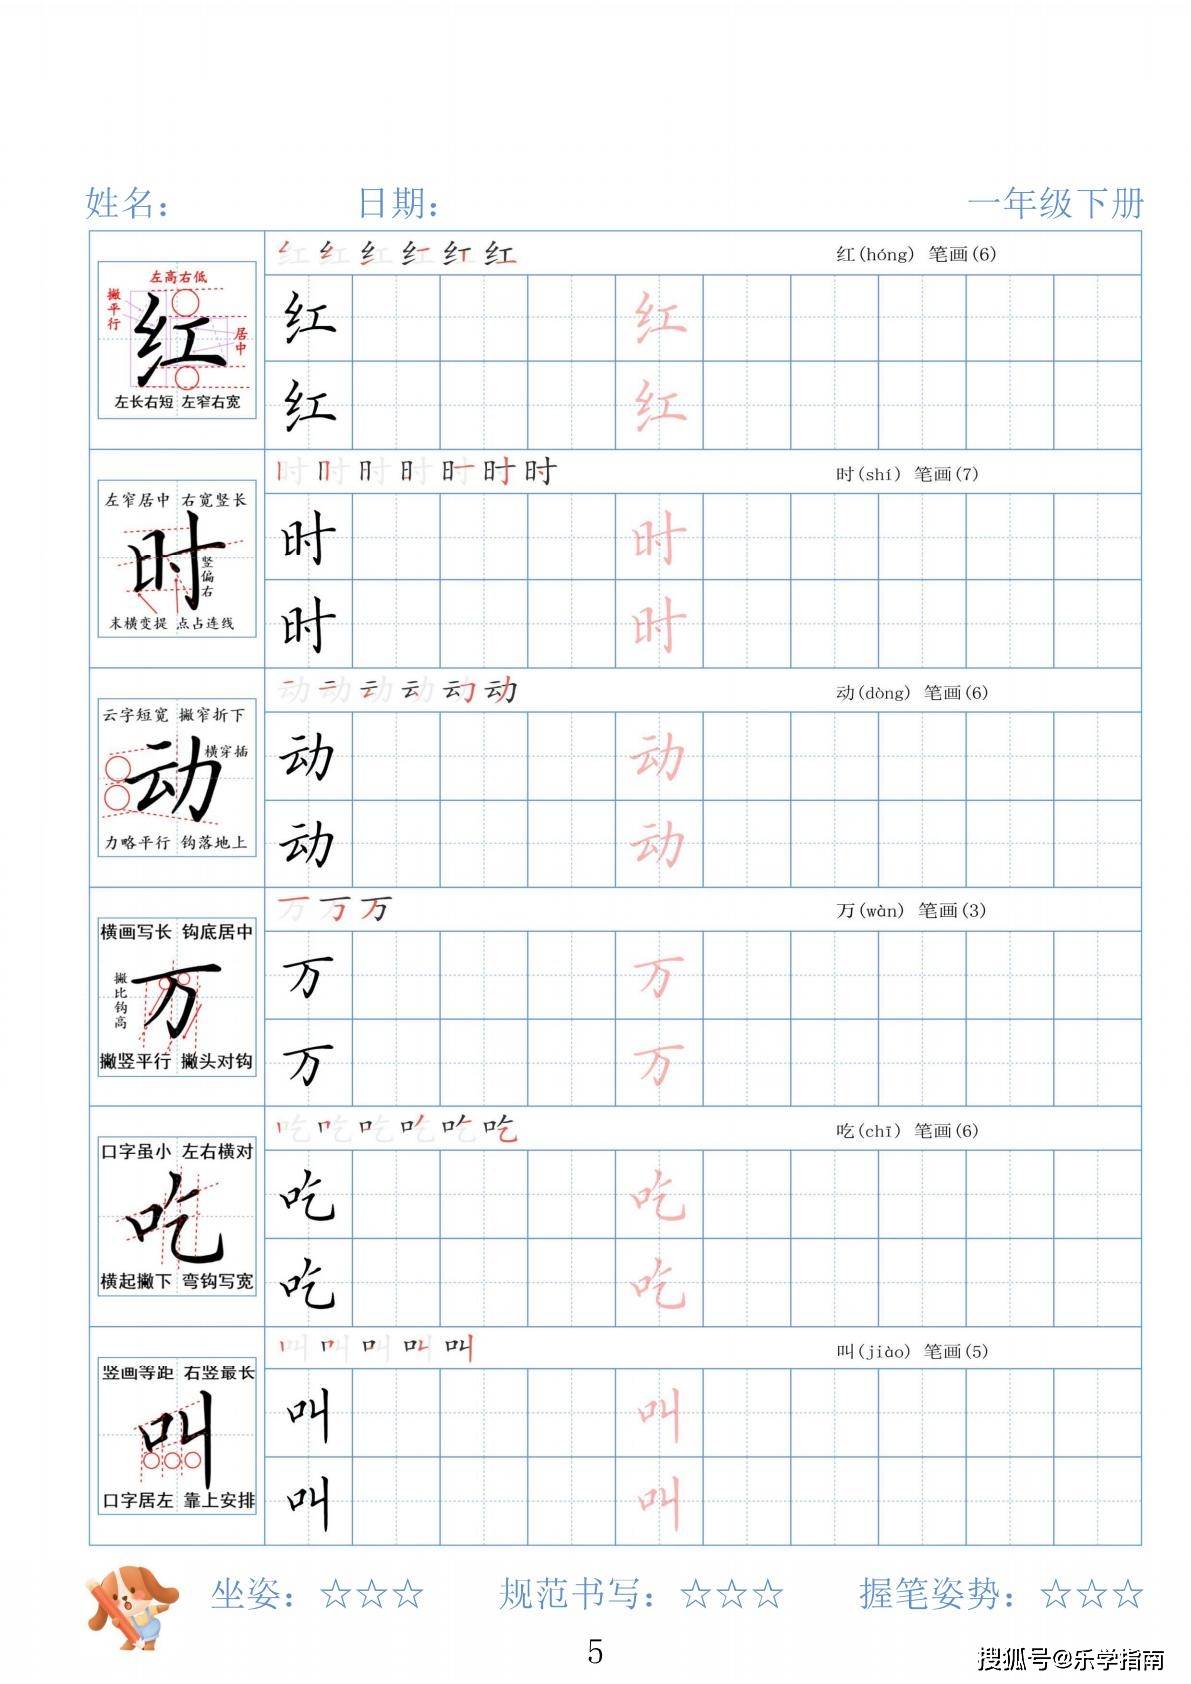 姓名： 日期： 一年级下册
红 红 红 红 红 红 红(hóng) 笔画(6)
左高右低
撇平行
红
居中
左长右短 左窄右宽
红 红
红 红
时 时 时 时 时 时 时 时(shí) 笔画(7)
左窄居中 右宽竖长
时
竖偏右
末横变提 点占连线
时 时
时 时
动 动 动 动 动 动 动(dòng) 笔画(6)
云字短宽 撇窄折下
横穿插
动
力略平行 钩落地上
动 动
动 动
万 万 万 万(wàn) 笔画(3)
横画写长 钩底居中
撇比钩高
万
撇竖平行 撇头对钩
万 万
万 万
吃 吃 吃 吃 吃 吃 吃(chī) 笔画(6)
口字虽小 左右横对
吃
横起撇下 弯钩写宽
吃 吃
吃 吃
叫 叫 叫 叫 叫 叫(jiào) 笔画(5)
竖画等距 右竖最长
叫
口字居左 靠上安排
叫 叫
叫 叫
坐姿：☆☆☆ 规范书写：☆☆☆ 握笔姿势：☆☆☆
5
搜狐号@乐学指南